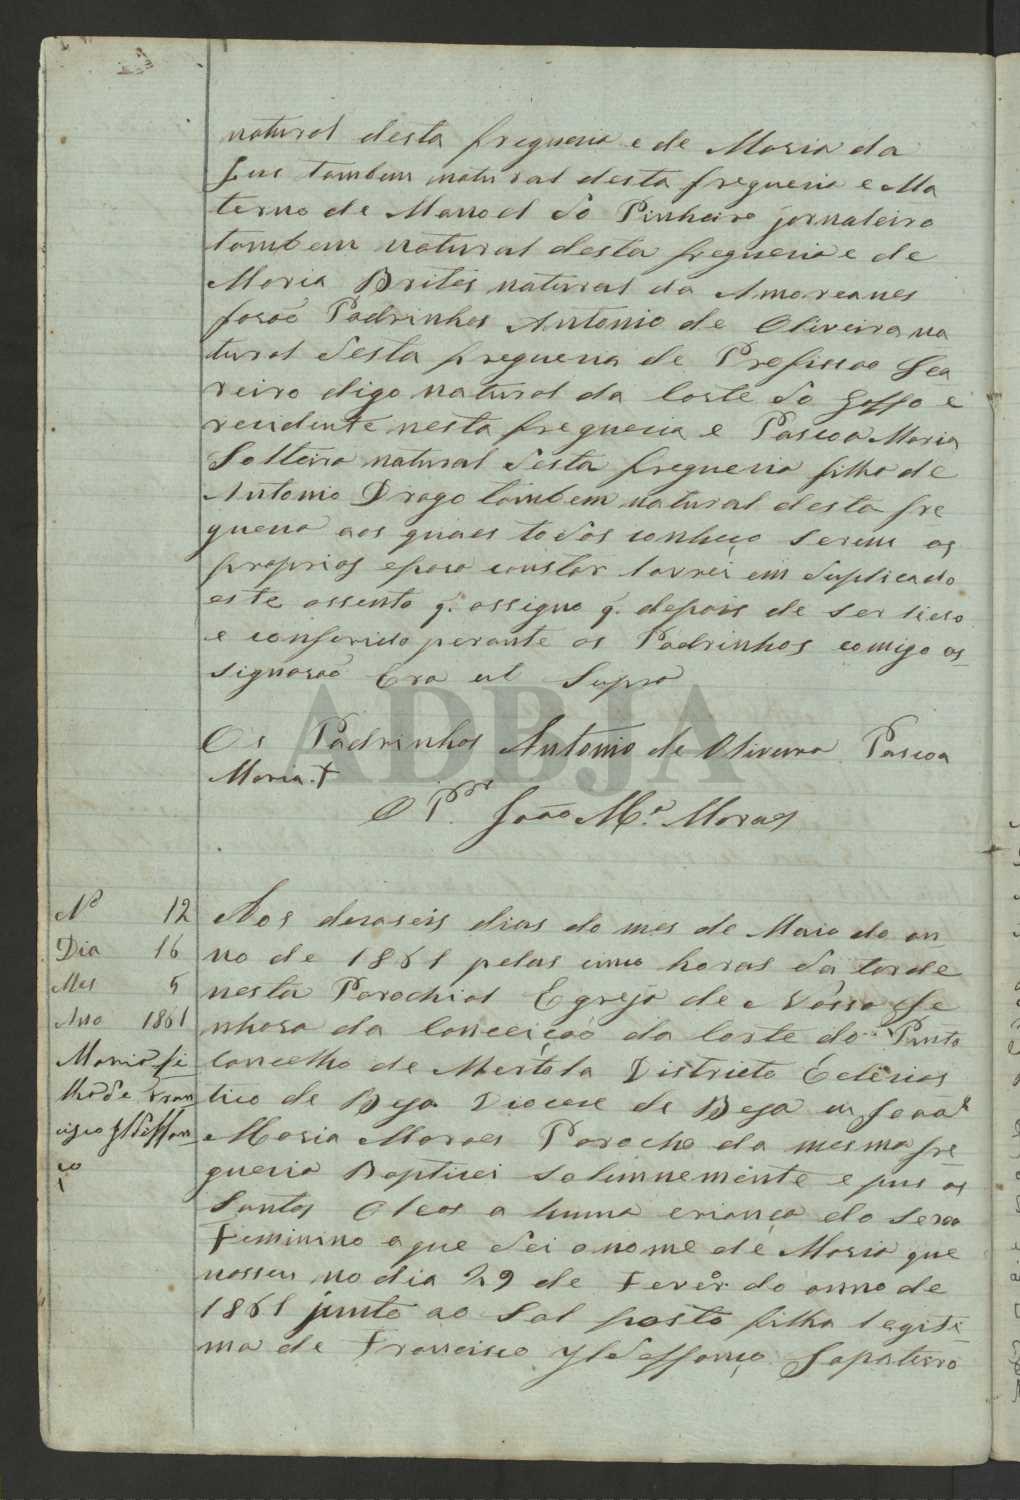 natural desta freguesia e de Maria da
Lus tambem natural desta freguesia e Ma
terno de Manoel do Pinheiro jornaleiro
tambem natural desta freguesia e de
Maria Brites natural da Amoreanes
forão Padrinhos Antonio de Oliveira na
tural desta freguesia de Profissao Sea
reiro digo natural da Corte do Gaffo e
recidente nesta freguesia e Pascoa Maria
Solteira natural desta freguesia filha de
Antonio Drago tambem natural desta fre
guesia aos quaes todos conheço serem os
proprios e para constar lavrei em duplicado
este assento q. assigno q. depois de ser lido
e conferido perante os Padrinhos comigo as
signarão Era ut Supra
Os Padrinhos Antonio de Oliveira Pascoa
Maria +
ADBJA
O P.or João M.a Moraes
Nº 12
Dia 16
Mes 5
Ano 1861
Maria fi
lha de Fran
cisco Ildeffon
ço
Aos desaseis dias do mes de Maio do an
no de 1861 pelas cinco horas da tarde
nesta Parochial Egreja de Nossa Se
nhora da Conceição da Corte do Pinto
Concelho de Mertola Districto Eclesias
tico de Beja Diocese de Beja eu João
Maria Moraes Parocho da mesma fre
guesia Baptisei Solemnemente e pus os
Santos Oleos a huma criança do sexo
Feminino a que dei o nome de Maria que
nasseu no dia 29 de Ferer.o do anno de
1861 junto ao Sol posto filha legiti
ma de Francisco Yldeffonço Sapateiro